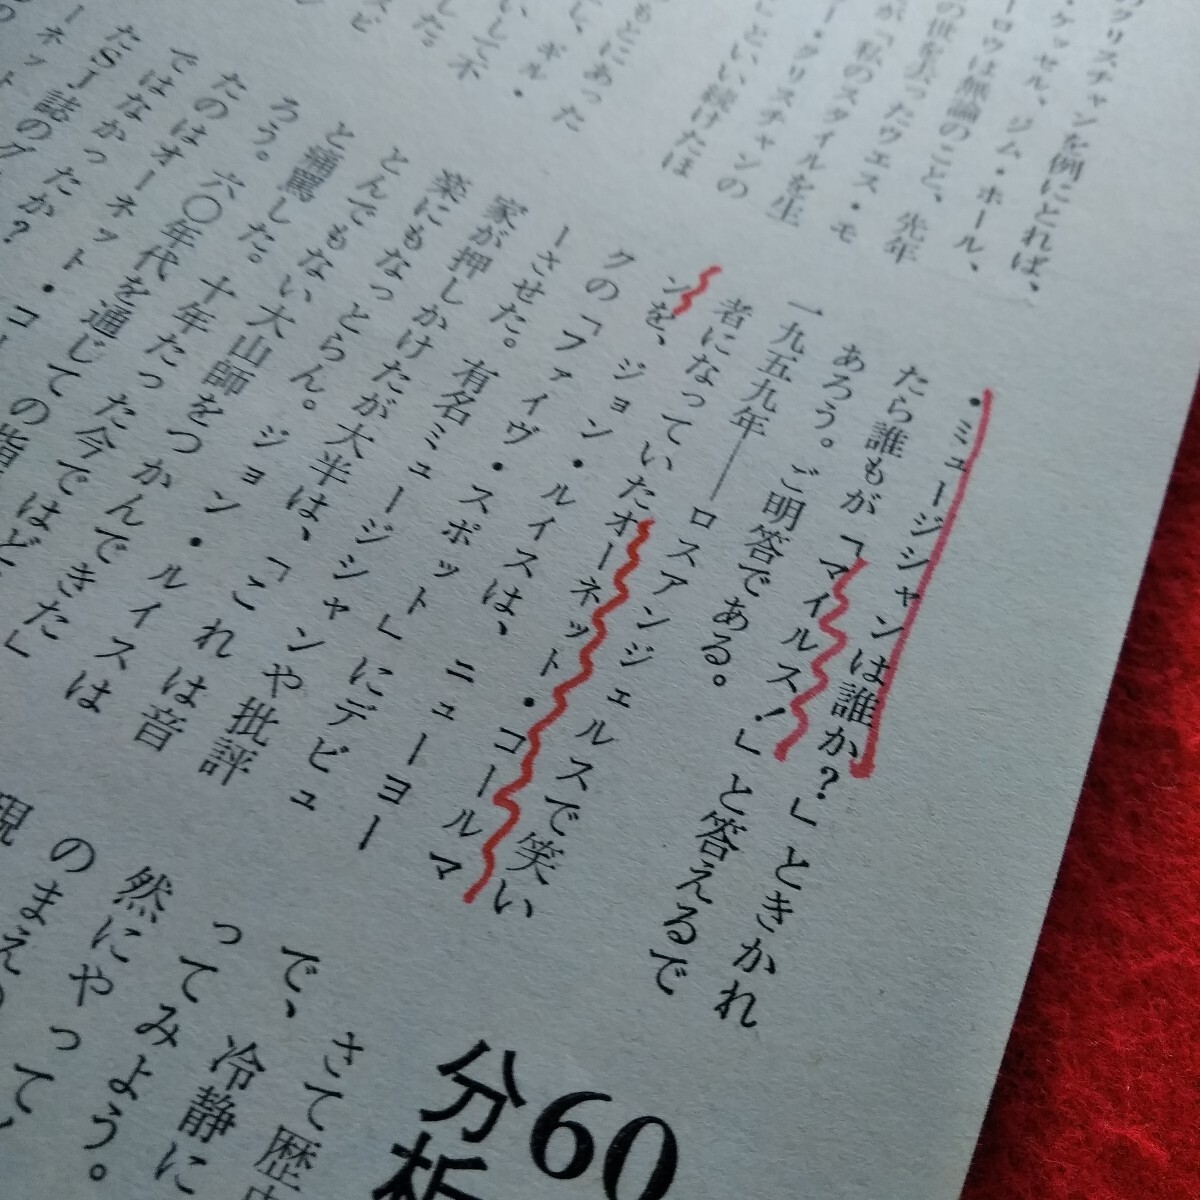 のクリスチャンを例にとれば、
・ケッセル、ジム・ホール、
ーロウは無論のこと、先年
の世を去ったウェス・モ
が「私のスタイルを生
ー・クリスチャンの
にといい続けたほ
もとにあった
し、ギル・
いして不
した。
スピ
・ミュージシャンは誰か？」ときかれ
たら誰もが「マイルス！」と答えるで
あろう。ご明答である。
一九五九年――ロスアンジェルスで笑い
者になっていたオーネット・コールマ
ンを、ジョン・ルイスは、ニューヨー
クの「ファイヴ・スポット」にデビュ
ーさせた。有名ミュージシャンや批評
家が押しかけたが大半は、「これは音
楽にもなっとらん。ジョン・ルイスは
とんでもない大山師をつかんできた」
と痛罵した。十年たった今ではど
ろう。六〇年代を通じての指
たのはオーネット・コー
ではなかったか？
たSJ誌のグ
ーネット
60
分析
さて歴
で、冷静に
ってみよう。
然にやって、
のまえの
現